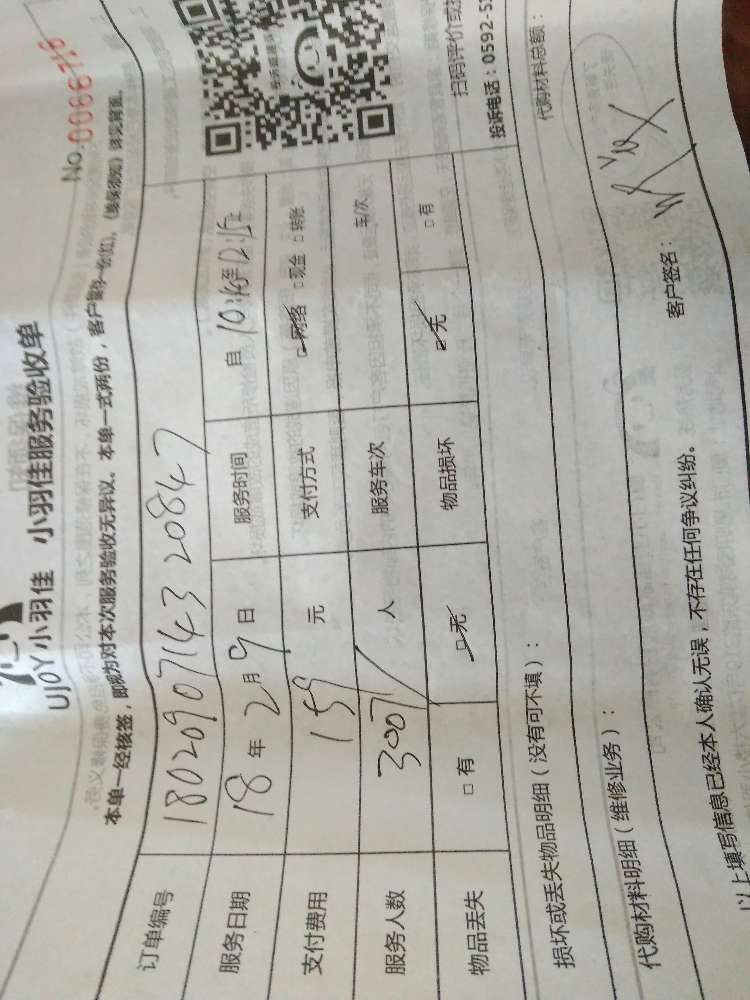 No.0066716
UJOY小羽佳 小羽佳服务验收单
本单一经核签，即视为对本次服务验收无异议。本单一式两份，客户留存一份(红)，《维保须知》详见背面。
订单编号 18020907143 20847
服务日期 18 年 2 月 9 日 服务时间 自 10:45至12:15
支付费用 159 元 支付方式 ☑网络 □现金 □转账
服务人数 3007/ 人 服务车次 车/次
物品丢失 □有 ☑无 物品损坏 ☑无 □有
扫码评价或
投诉电话：0592-5
损坏或丢失物品明细（没有可不填）：
代购材料明细（维修业务）： 代购材料总额：
以上填写信息已经本人确认无误，不存在任何争议纠纷。
客户签名：